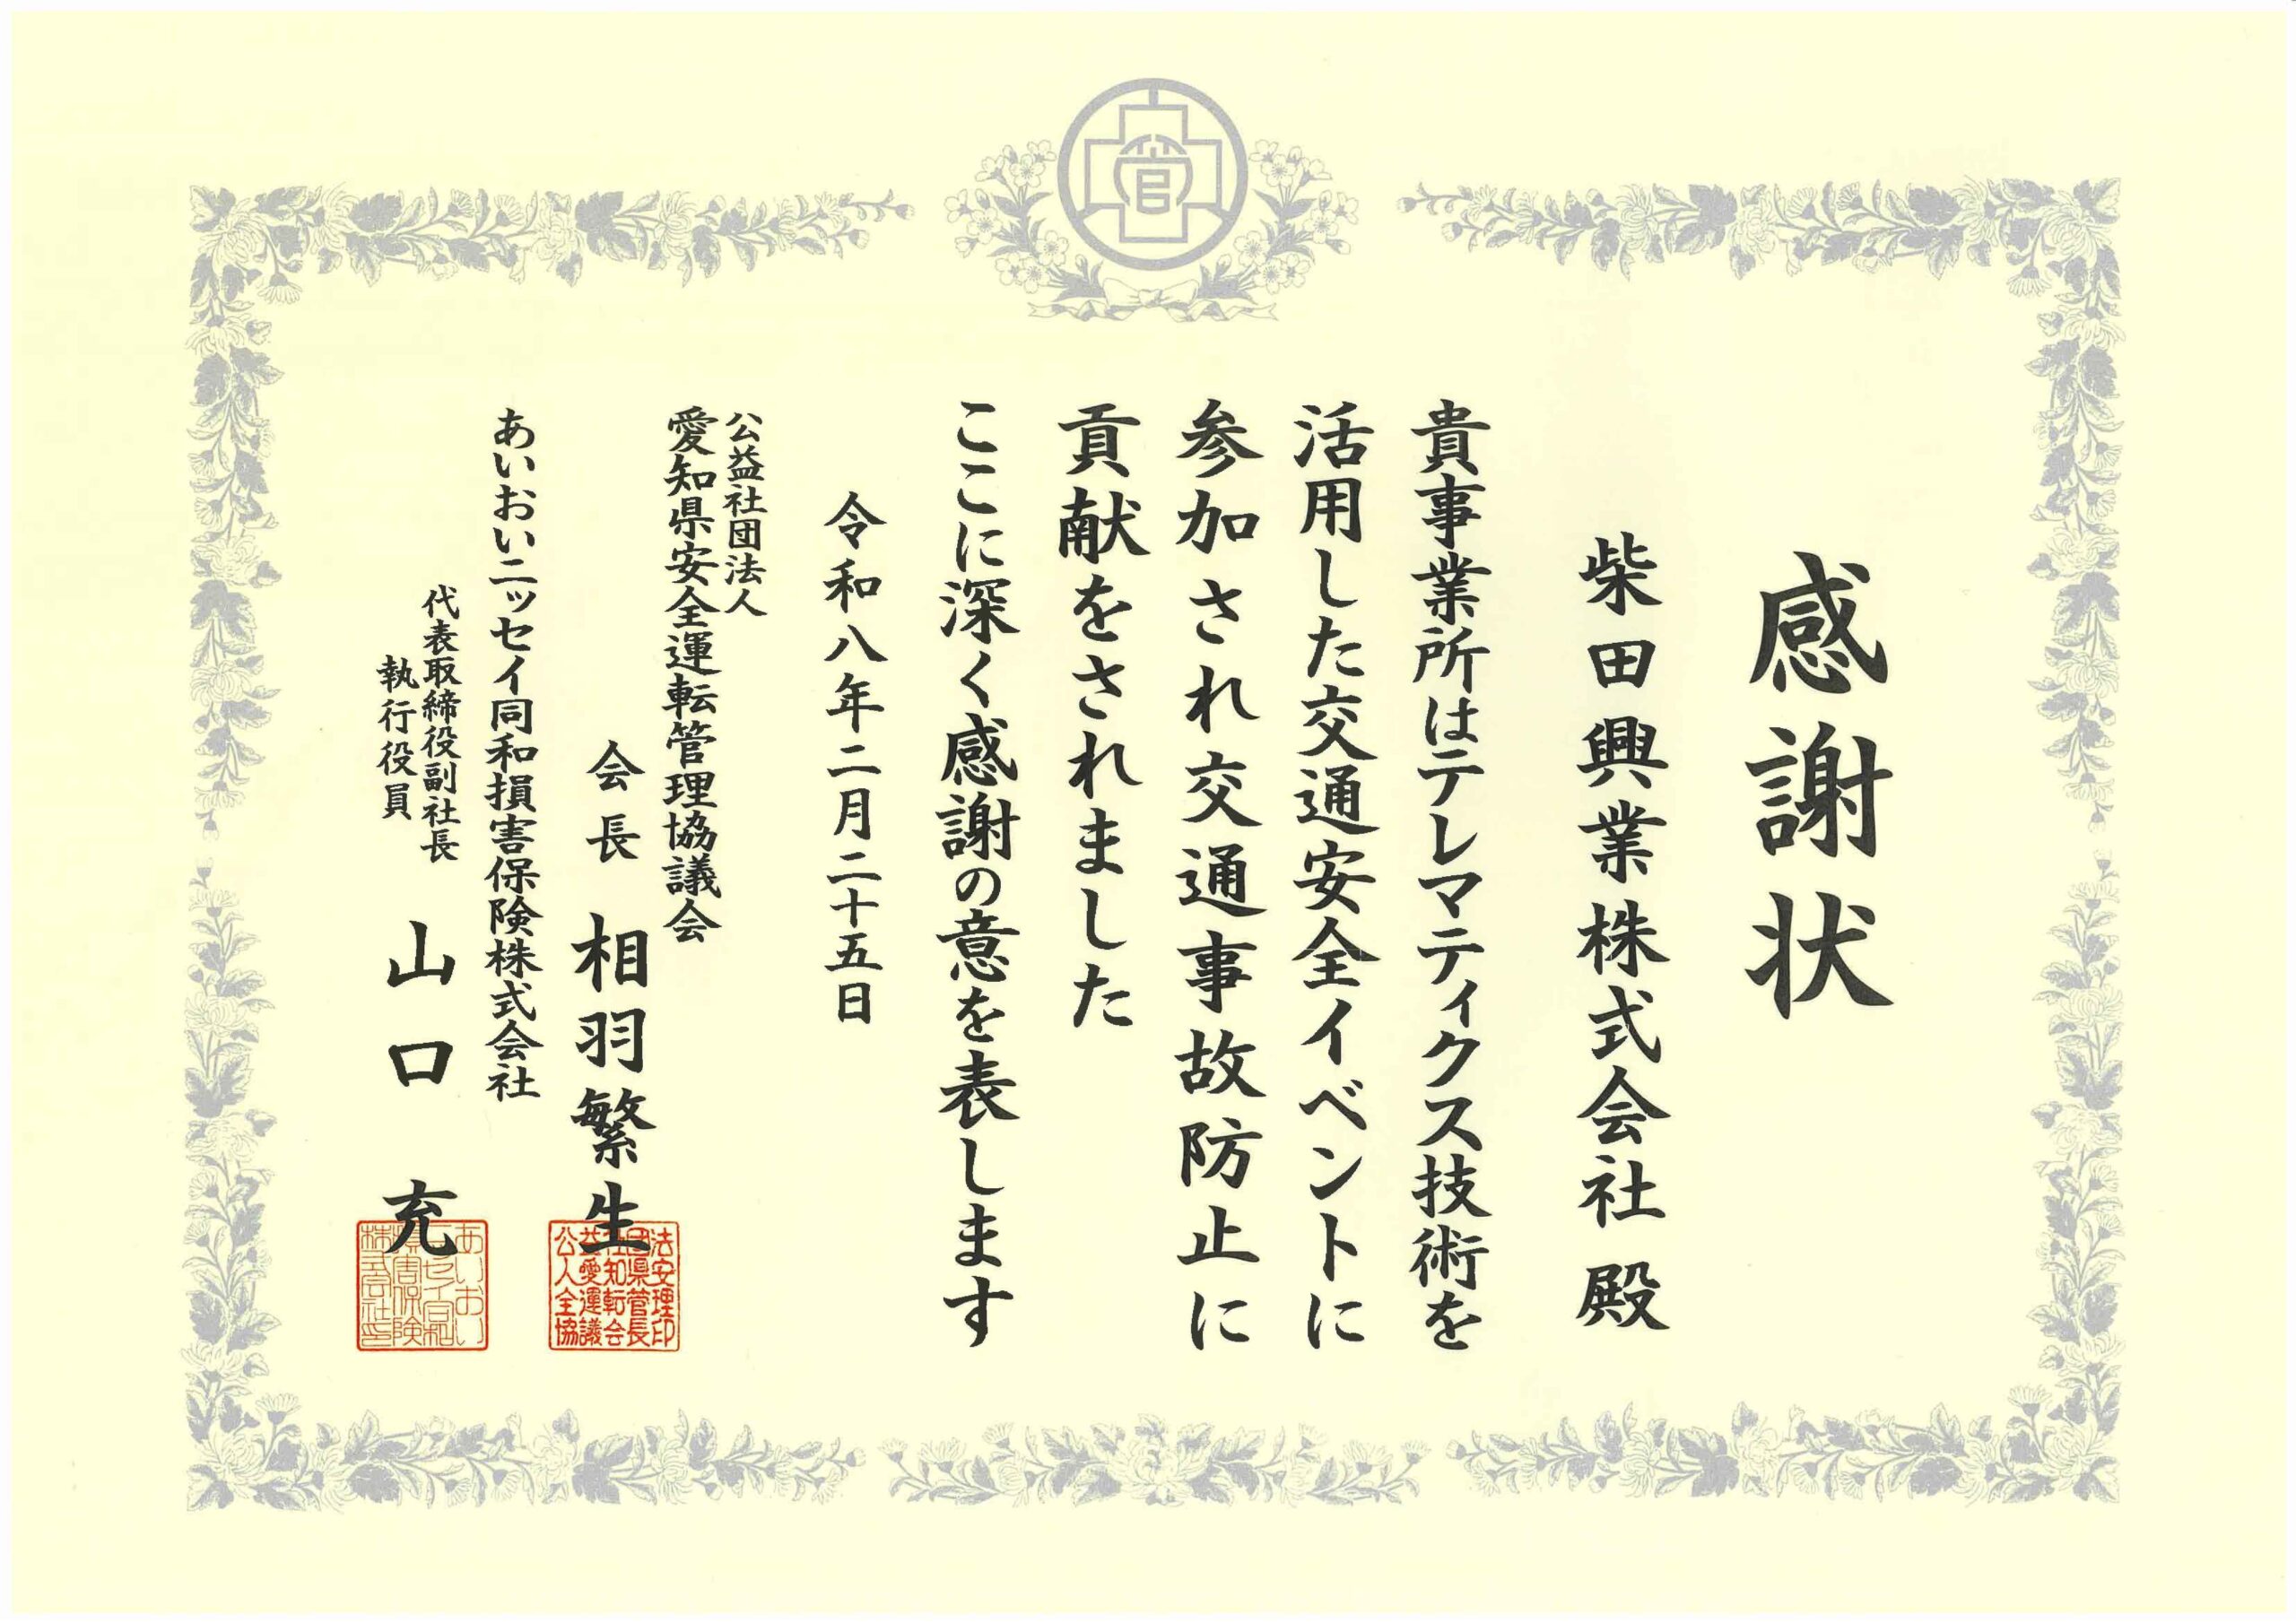 管
感謝状
柴田興業株式会社 殿
貴事業所はテレマティクス技術を
活用した交通安全イベントに
参加され交通事故防止に
貢献をされました
ここに深く感謝の意を表します
令和八年二月二十五日
公益社団法人
愛知県安全運転管理協議会
会長 相羽繁生
あいおいニッセイ同和損害保険株式会社
代表取締役副社長
執行役員
山口 充
法安理印
団県管長
社知転会
益愛運議
公人全協
あいおい
ニッセイ同和
損害保険
株式会社印